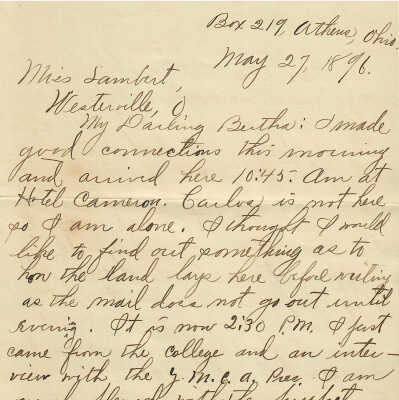 Box 219, Athens, Ohio.
May 27, 1896.
Miss Lambert,
Westerville, O
My Darling Bertha: I made
good connections this morning
and arrived here 10:45 Am at
Hotel Cameron. Carlos is not here
so I am alone. I thought I would
like to find out something as to
how the land lays here before writing
as the mail does not go out until
evening. It is now 2:30 P.M. I just
came from the college and an inter-
view with the Y.M.C.A. Pres. I am
with the